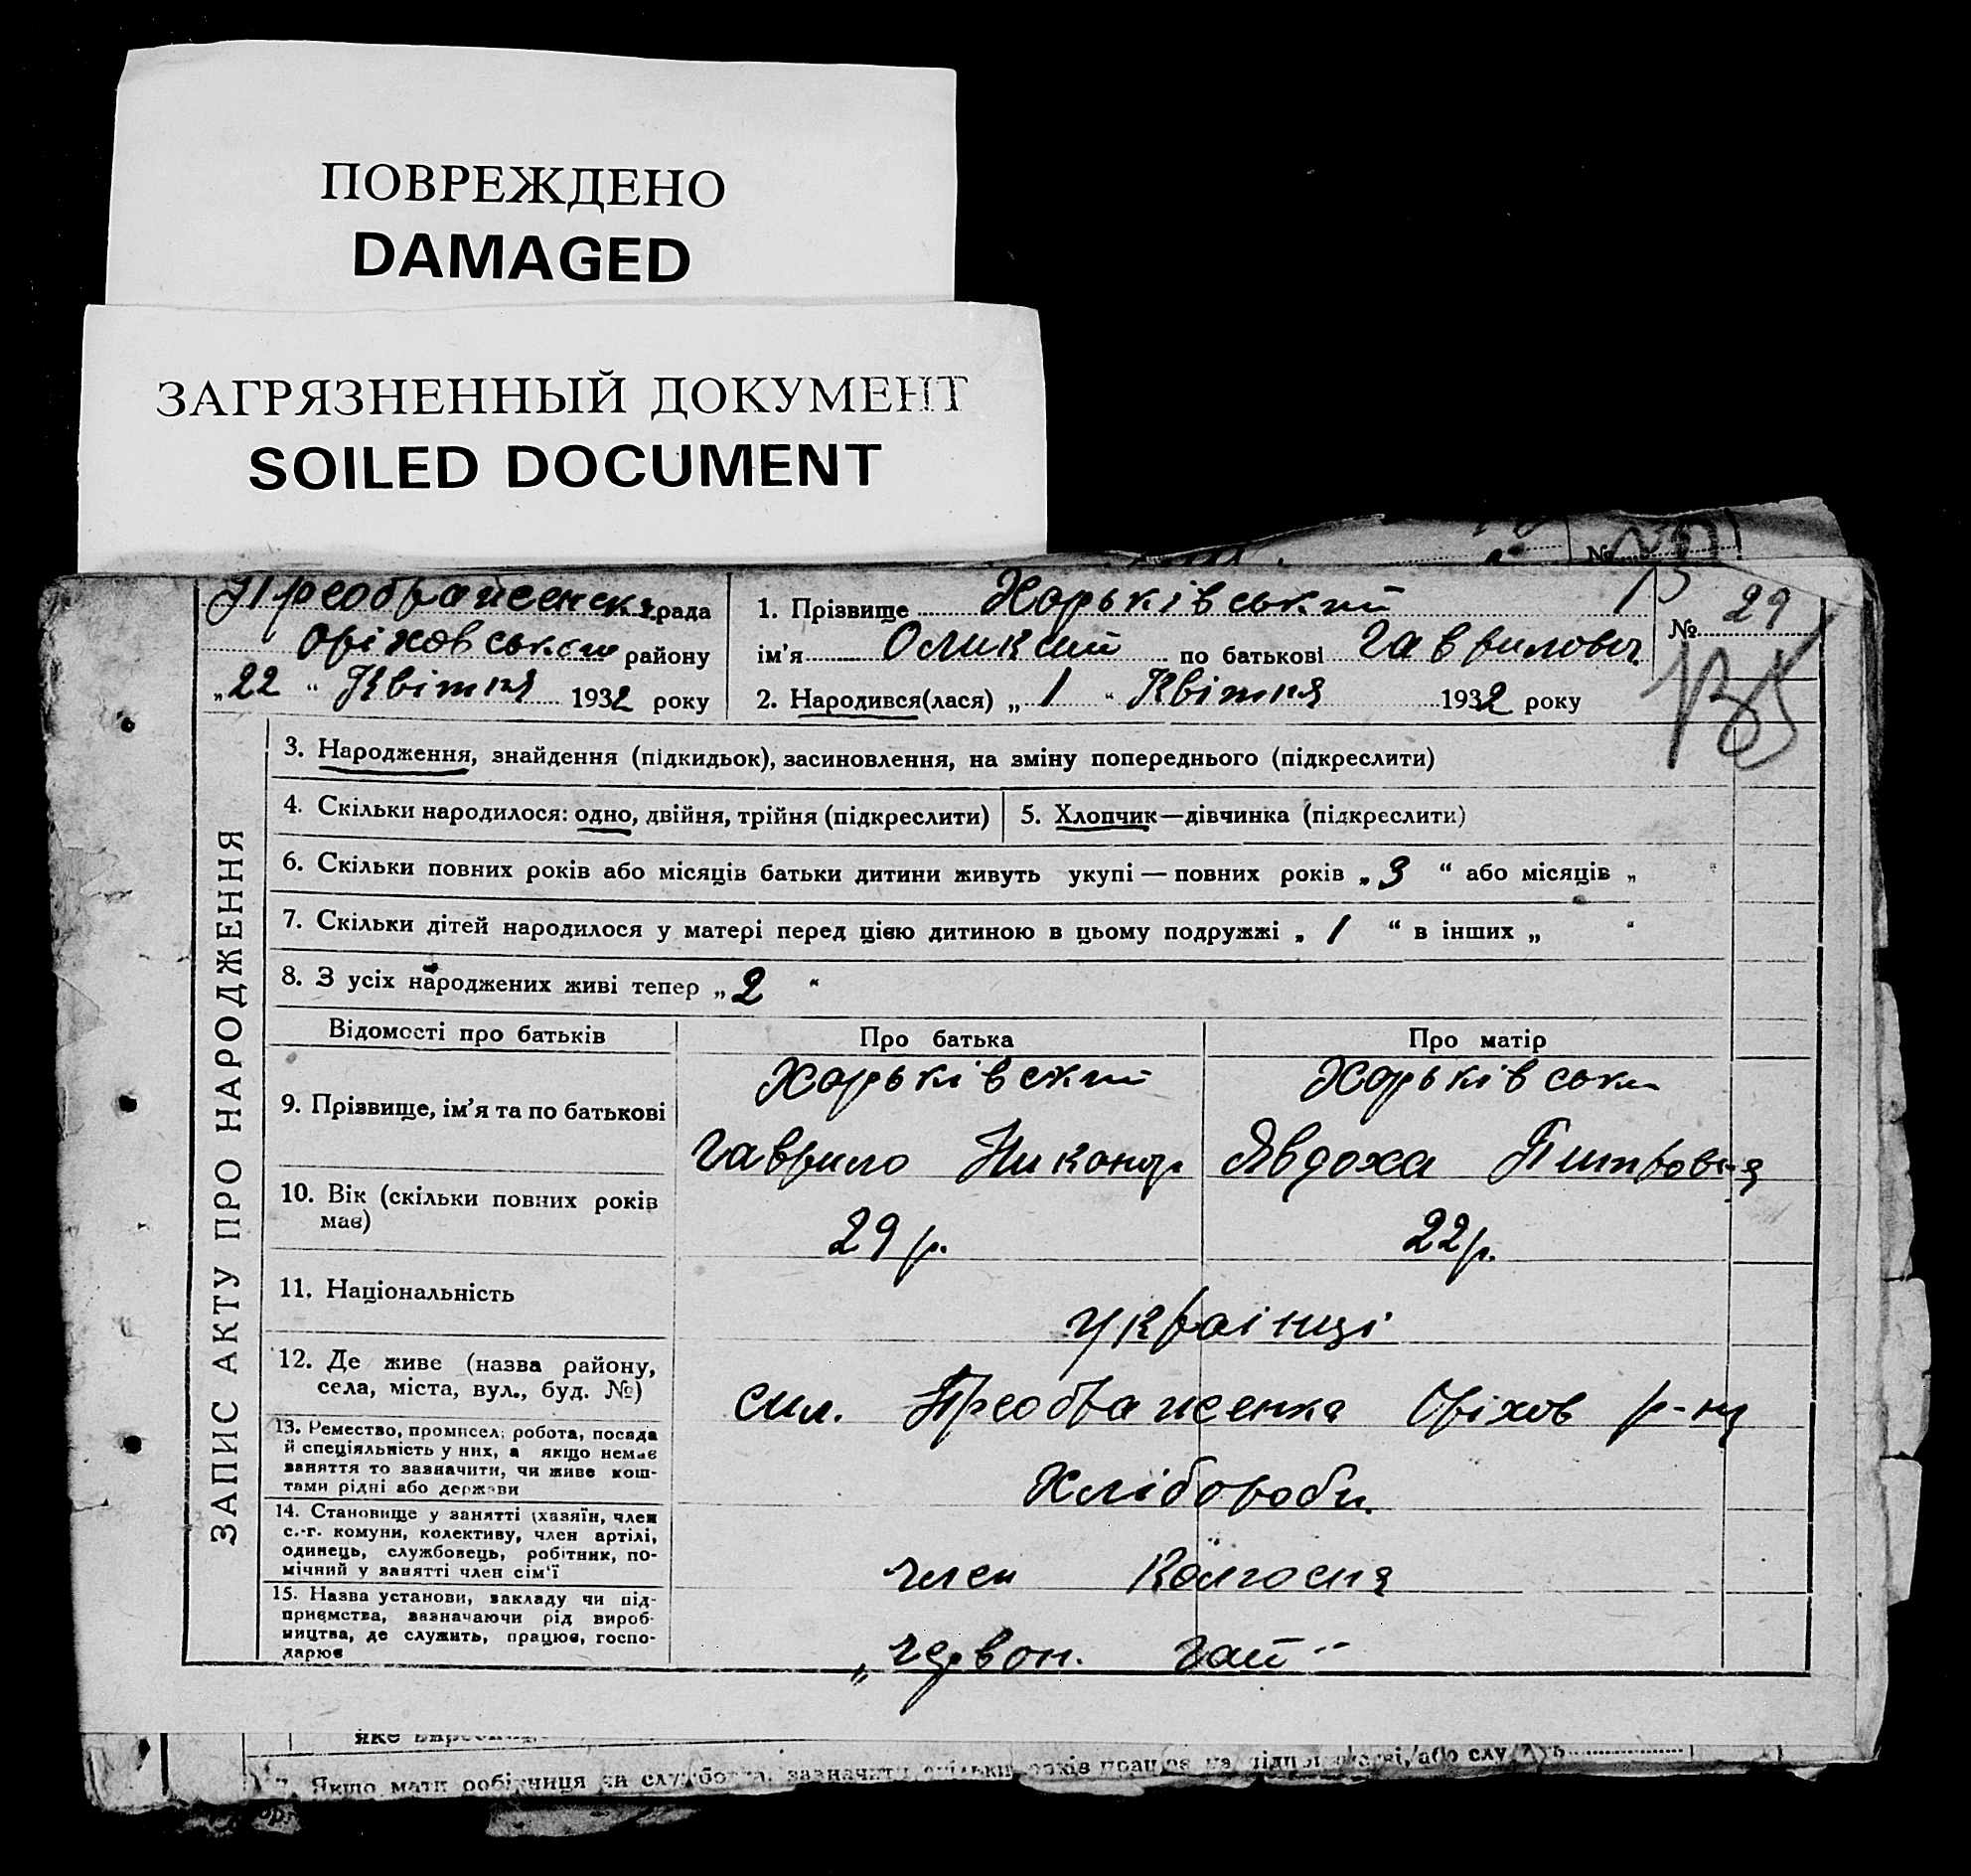 ПОВРЕЖДЕНО
DAMAGED
ЗАГРЯЗНЕННЫЙ ДОКУМЕНТ
SOILED DOCUMENT
Преображенська рада
Оріховського району
„22 “ Квітня 1932 року
1. Прізвище Харьківський
ім'я Оликсий по батькові Гаврилович
2. Народився(лася) „ 1 “ Квітня 1932 року
№ 29
ЗАПИС АКТУ ПРО НАРОДЖЕННЯ
3. Народження, знайдення (підкидьок), засиновлення, на зміну попереднього (підкреслити)
4. Скільки народилося: одно, двійня, трійня (підкреслити)
5. Хлопчик—дівчинка (підкреслити)
6. Скільки повних років або місяців батьки дитини живуть укупі — повних років „ 3 “ або місяців „ “
7. Скільки дітей народилося у матері перед цією дитиною в цьому подружжі „ 1 “ в інших „ “
8. З усіх народжених живі тепер „ 2 “
Відомості про батьків
Про батька
Про матір
9. Прізвище, ім'я та по батькові
Харьківский
Гаврило Никонор
Харьківськи
Явдоха Питровня
10. Вік (скільки повних років
має)
29 р.
22 р.
11. Національність
українці
12. Де живе (назва району,
села, міста, вул., буд. №)
сил. Преображенка Оріхов р-ну
13. Ремество, промисел, робота, посада
й спеціяльність у них, а якщо немає
заняття то зазначити, чи живе кош-
тами рідні або держави
Хлібороби.
14. Становище у занятті (хазяїн, член
с.-г. комуни, колективу, член артілі,
одинець, службовець, робітник, по-
мічний у занятті член сім'ї
член Колгоспа
15. Назва установи, закладу чи під-
приємства, зазначаючи рід вироб-
ництва, де служить, працює, госпо-
дарює
„Червон. Гай“
яке
Якщо мати робітниця чи